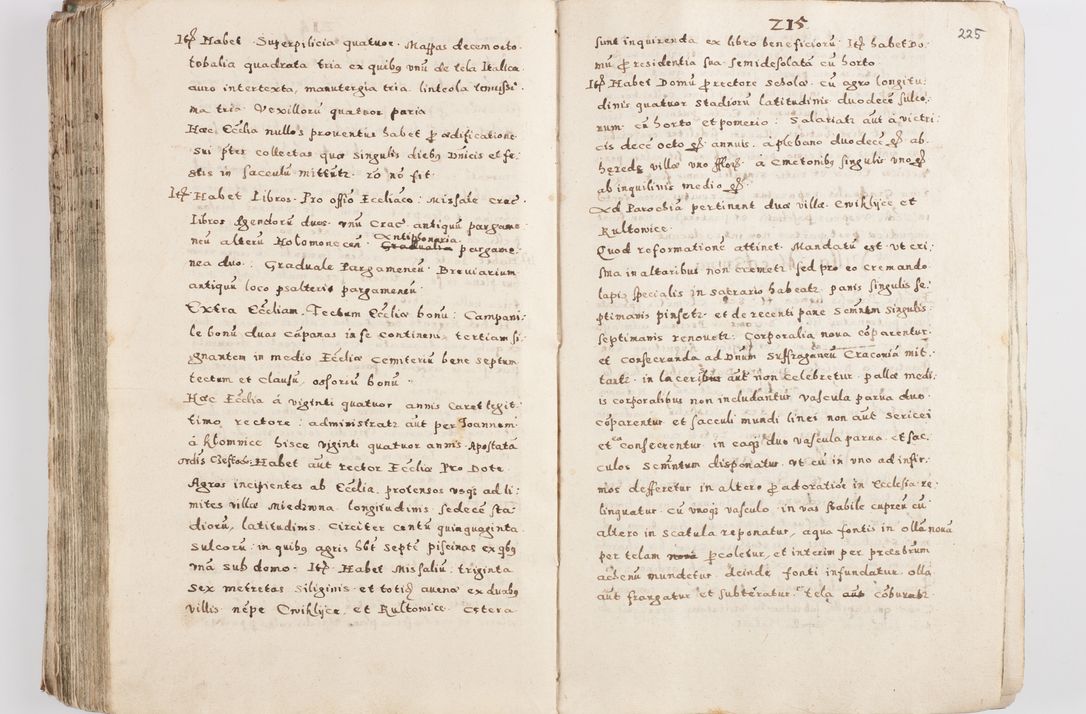 Itꝫ Habet Superpilicia quatuor. Mappas decem octo.
tobalia quadrata tria ex quibꝯ vnū de tela Italica
auro intertexta, manutergia tria linteola tenuissi
ma tria Vexillorū quatuor paria
Hæc Ecclia nullos prouentus habet ꝑ ædificatione
sui pter collectas quæ singulis diebꝯ Dnicis et fe
stis in sacculū mittūtꝛ. rō nō fit.
Itꝫ Habet Libros. Pro offō Eccliaco: Missale Crac.
Libros Agendorū duos vnū Crac antiquū pargame
neū alterū Holomoncen. Antiphonaria pargame:
nea duo: Graduale Pargameneū. Breuiarium
antiquū loco psalterio pargameneū.
Extra Eccliam. Tectum Ecclia bonū: Campani:
le bonū duas cāpanas in se continens tertiam si:
gnantem in medio Ecclia Cemiteriū bene septum
tectum et clausū, ossoriū bonū.
Hæc Ecclia á viginti quatuor annis Caret legit:
timo rectore: administratꝛ aūt per Joannem
á Klomnice hisce viginti quatuor annis Apostatā
ordis Habet aūt rector Eccliæ Pro Dote
Agros incipientes ab Ecclia. protensos vsqꝫ ad li:
mites villæ Miedzwna longitudinis sedecē sta
diorū, latitudinis. Circiter centū quinquaginta
sulcorū: in quibꝯ agris hbt septē piscinas ex qbꝯ
vnā sub domo. Itꝫ Habet Missaliū: triginta
sex metretas siliginis et totidē auenæ ex duabꝯ
villis nēpe Cwiklyce, et Rultowice. Cetera
215
225
sunt inquirenda ex libro beneficiorū. Itꝫ habet Do:
mū ꝑ residentia sua semidesolatā cū horto
Itꝫ Habet Domū ꝑ rectore scholæ cū agro longitu
dinis quatuor stadiorū latitudinis duodecē sulco:
rum cū horto et pomerio: Salariatꝛ aūt á victri
cis decē octo annuis. á plebano duodecē ab
heredꝫ villæ vno á Cmetonibꝯ singulis vno
ab inquilinis medio
Ad Parochiā pertinent duæ villæ. Cwiklyce et
Rultowice
Quod reformationē attinet. Mandatū est vt cri:
sma in altaribus non cremetꝛ sed pro eo cremando
lapis specialis in sacrario habeatꝛ panis singulis se:
ptimanis pinsetꝛ et de recenti pane Scmntm singulis
septimanis renouetꝛ: Corporalia noua cōparentur.
et consecranda ad Dnum Suffraganeū Cracouiæ mit:
tantꝛ. in laceribus aūt non celebretur. pallæ medi:
is corporalibus non includantur Vascula parua duo
cōparentur et sacculi mundi linei non aūt sericei
et consecrentur in eaqꝫ duo vascula parua et sac:
culos Scmntum disponatur. vt cū in vno ad infir:
mos defferetur in altero ꝑ adoratiōe in Ecclesia re:
linquatur. cū vnoqꝫ vasculo. in vas stabile cupreū cū
altero in scatula reponatur, aqua fontis in ollā nouā
per telam ꝑcoletur, et interim per præsbrum
aeneū mundetur deinde fonti infundatur olla
aūt frangatur et subteratur tela aūt cōburatꝛ